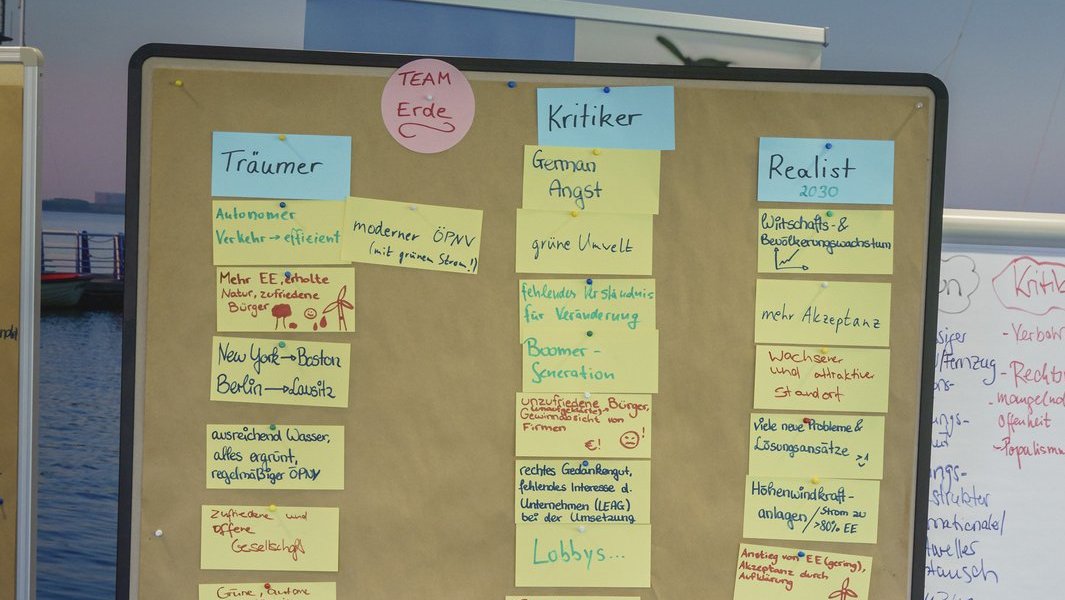 TEAM
Erde
Träumer
Autonomer
Verkehr → effizient
moderner ÖPNV
(mit grünem Strom!)
Mehr EE, erholte
Natur, zufriedene
Bürger
New York → Boston
Berlin → Lausitz
ausreichend Wasser,
alles ergrünt,
regelmäßiger ÖPNV
Zufriedene und
offene
Gesellschaft
Grüne, autone
Kritiker
German
Angst
grüne Umvelt
fehlendes Verständnis
für Veränderung
Boomer-
Generation
unzufriedene Bürger,
unaufgeklärte
Gewinnabsicht von
Firmen
€! !
rechtes Gedankengut,
fehlendes Interesse d.
Unternehmen (LEAG)
bei der Umsetzung
Lobbys...
Realist
2030
Wirtschafts- &
Bevölkerungswachstum
mehr Akzeptanz
Wachserer
und attraktiver
Standort
viele neue Probleme &
Lösungsansätze >1
Höhenwindkraft-
anlagen / Strom zu
>80% EE
Anstieg von EE (gering),
Akzeptanz durch
Aufklärung
Kritik
- Verbohr
- Rechts
- mangelnd
Offenheit
- Populismu